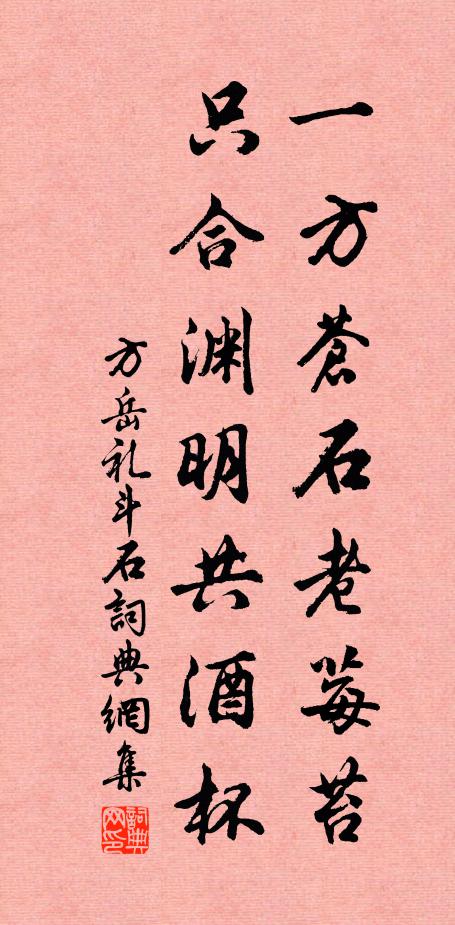 一方蒼石老莓苔
只合渊明共酒杯
方岳礼斗石詞典網集
詞典网印